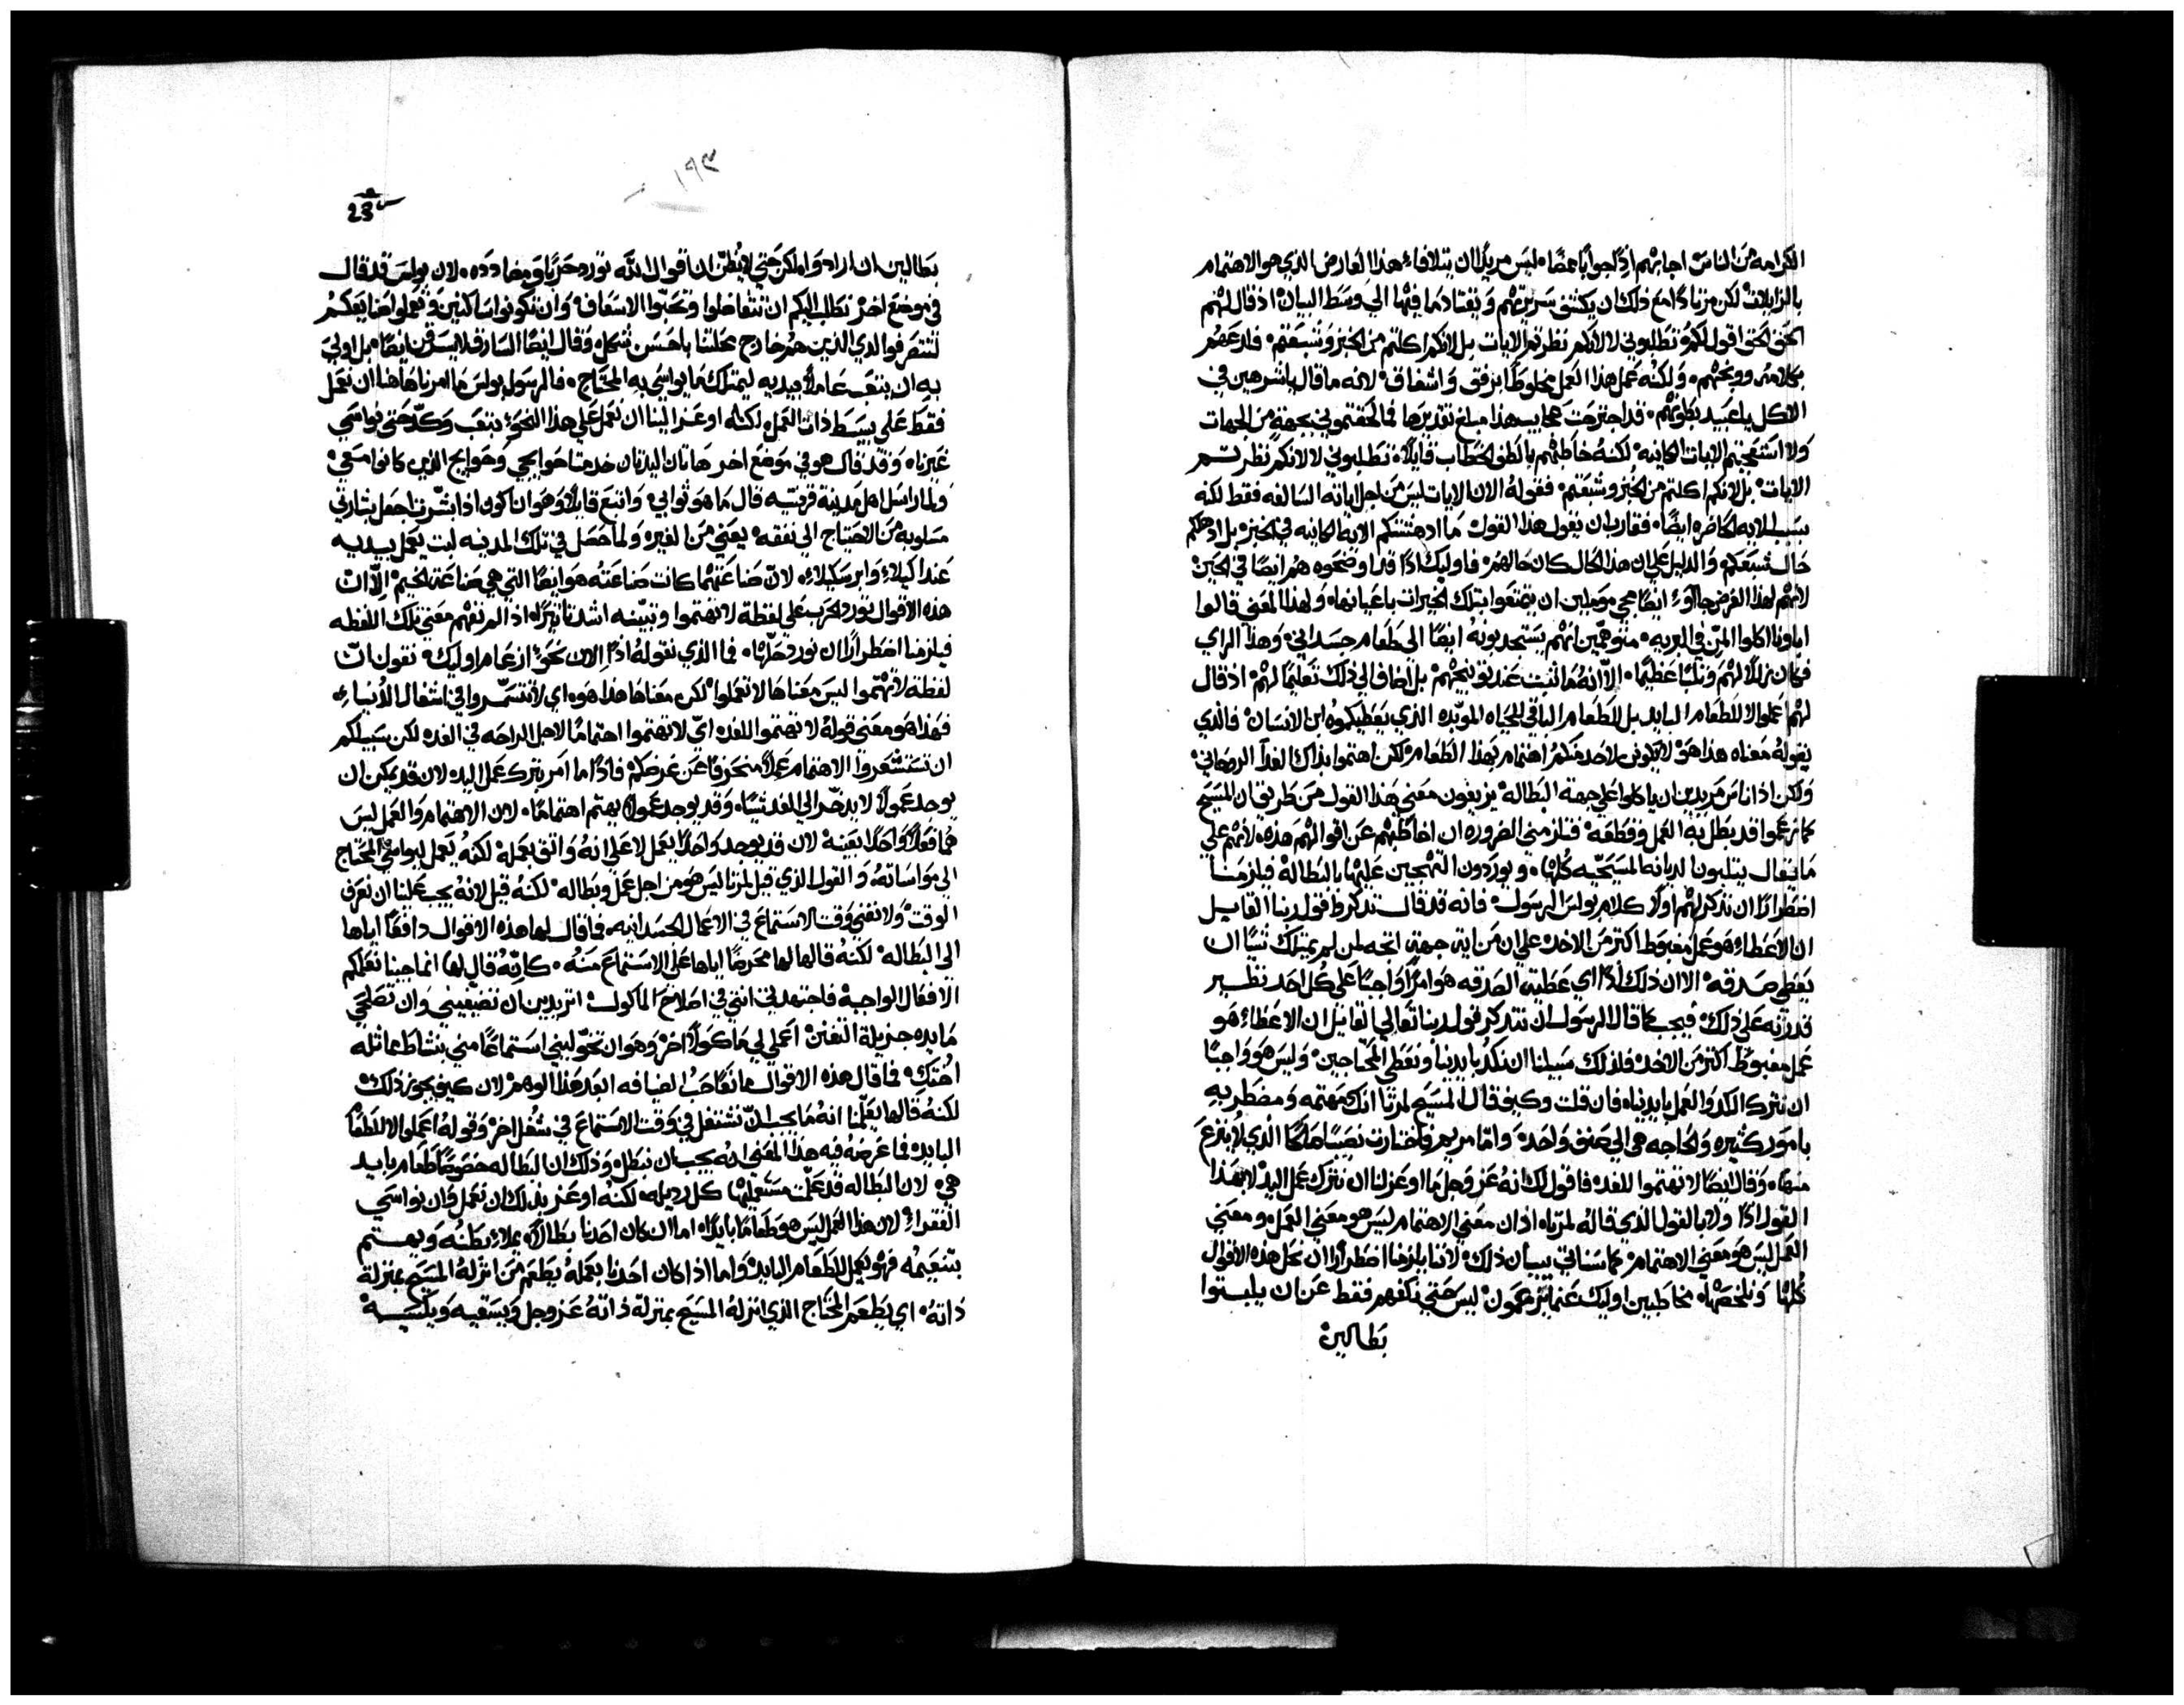 الكرامه من الناس اجابهم اذًا جوابًا عمضًا. ليس مريدًا ان يتلافاء هذا العارض الذي هو الاهتمام
بالزايلات لكن مزيدًا مع ذلك ان يكشف سريرتهم ويقتادهما فيها الي وسط البيان اذ قال لهم
الحق الحق اقول لكم تطلبوني لا لانكم نظرتم الايات بل لانكم اكلتم من الخبز وشبعتم فلدعهم
بكلامه ووبخهم ولكنه عمل هذا العمل مخلوطًا برفق واشفاق لانه ما قال يا شرهين في
الاكل يا عبيد بطونهم قد اجترحت عجايب هذا مبلغ تقديرها فما لحقتموني بجهة من الجهات
ولا استعجبتم الايات الكاينه لكنه خاطبهم بالطف الخطاب قايلًا تطلبوني لا لانكم نظرتم
الايات بل لانكم اكلتم من الخبز وشبعتم فقوله الان الايات ليس من اجل اياته السالفه فقط لكنه
بسبب الايه الحاضره ايضًا فقارب ان يقول هذا القول ما ادهشتكم الايه الكاينه في الخبز بل ادهشكم
حال شبعكم والدليل علي ان هذا الحال كان حالهم فاوليك اذًا قد اوضحوه هم ايضًا في الحين
لانهم لهذا الغرض جاوء ايضًا مجي موملين ان يتمتعوا بتلك الخيرات باعيانها ولهذا المعني قالوا
اباونا اكلوا المن في البريه متوهمين انهم يستجدبونه ايضًا الي طعام جسداني وهذا الراي
فكان زللًا لهم وثلبًا عظيمًا الا انه ما ثبت عند توبيخهم بل اضاف الي ذلك تعليمًا لهم اذ قال
لهم اعملوا لا للطعام البايد بل للطعام الباقي للحياه الموبده الذي يعطيكموه ابن الانسان فالذي
يقوله معناه هذا هو لا يكون لاحد منكم اهتمام بهذا الطعام لكن اهتموا بذاك الغدا الروحاني
ولكن اذ اناس مريدين ان ياكلوا علي جهة البطاله يزيغون معني هذا القول من طريق ان المسيح
كما زعموا قد بطل به العمل وقطعه فلزمني الضروره ان اخاطبهم عن اقوالهم هذه لانهم علي
ما يقال يثلبون الديانه المسيحيه كلها ويوردون التهجين عليها بالبطاله فيلزمنا
اضطرارًا ان نذكر لهم اولًا كلام بولس الرسول فانه قد قال نتذكر قول ربنا القايل
ان الاعطاء هو عمل مغبوط اكثر من الاخذ علي ان من اية جهة اتجه لمن لم يمتلك شيًا ان
يعطي صدقه الا ان ذلك اذًا اي عطية الصدقه هو امرًا واجبًا علي كل احد نظير
قدرته علي ذلك فيجب كما قال الرسول ان نتذكر قول ربنا تعالي القايل ان الاعطاء هو
عمل مغبوط اكثر من الاخذ فلذلك سبيلنا ان نكد بايدينا ونعطي المحتاجين وليس هو واجبًا
ان نترك الكد والعمل بايدينا فان قلت وكيف قال المسيح لمرتا انك مهتمه ومضطربه
بامور كثيره والحاجه هي الي صنف واحد واما مريم فاختارت نصيبًا صالحًا الذي لا ينزع
منها وقال ايضًا لا تهتموا للغد فاقول لك انه عز وجل ما اوعز لنا ان نترك عمل اليد لا بهذا
القول اذًا ولا بالقول الذي قاله لمرتا اذ ان معني الاهتمام ليس هو معني العمل ومعني
العمل ليس هو معني الاهتمام كما سناتي ببيان ذلك لاننا يلزمنا اضطرارًا ان نحل هذه الاقوال
كلها ونلخصها مخاطبين اوليك عما يزعمون ليس حتي نكفهم فقط عن ان يلبثوا
بطالين
١٩٣
23
بطالين ان ارادوا لكن حتي لا يظن ان اقوال الله تورد حربًا ومضادده لان بولس قد قال
في موضع اخر نطلب اليكم ان تتفاضلوا وتحبوا الاسعاف وان تكونوا ساكنين وتعملوا صنايعكم
لتتصرفوا لدي الذين هم خارج محلتنا باحسن شكل وقال ايضًا السارق لا يسرق ايضًا بل اولي
به ان يتعب عاملًا بيديه ليمتلك ما يواسي به المحتاج فالرسول بولس ما امرنا هاهنا ان نعمل
فقط علي بسيط ذات العمل لكنه اوعز الينا ان نعمل علي هذا النحو بتعب وكد حتي نواسي
غيرنا وقد قال هو في موضع اخر هاتان اليدتان خدمتا حوايجي وحوايج الذين كانوا معي
ولما راسل اهل مدينة قرنتيه قال ما هو ثوابي واتبع قايلًا وهو ان اكون اذا بشرت اجعل بشارتي
مسلوبه من الاحتياج الي نفقه يعني من الغير ولما حصل في تلك المدينه لبث يعمل بيديه
عند اكيلاء وابرسكيلاء لان صناعتهما كانت صناعته هو ايضًا التي هي صناعة الخيم الا ان
هذه الاقوال تورد الحرب علي لفظة لا تهتموا وتبينه اشد تاثيرًا اذ لم نفهم معني تلك اللفظه
فيلزمنا اضطرارًا ان نورد حلها فما الذي نقوله اذًا الان نحو ازعام اوليك نقول ان
لفظة لا تهتموا ليس معناها لا تعملوا لكن معناها هذا هو اي لا تتسمروا في اشغال الدنياء
فهذا هو معني قوله لا تهتموا للغد اي لا تهتموا اهتمامًا لاجل الراحه في الغد لكن سبيلكم
ان تستشعروا الاهتمام عملًا منحرفًا عن غرضكم فاذًا ما امر بترك عمل اليد لان قد يمكن ان
يوجد عمولًا لا يدخر الي الغد شيًا وقد يوجد عمولًا يهتم اهتمامًا لان الاهتمام والعمل ليس
هما فعلًا واحدًا بعينه لان قد يوجد واحدًا يعمل لا علي انه واثق بعمله لكنه يعمل ليواسي المحتاج
الي مواساته والقول الذي قيل لمرتا ليس هو من اجل عمل وبطاله لكنه قيل لانه يجب علينا ان نعرف
الوقت ولا نفني وقت الاستماع في الاعمال الجسدانيه فما قال لها هذه الاقوال دافعًا اياها
الي البطاله لكنه قالها لها محرضًا اياها علي الاستماع منه كانه قال لها انما جينا نعلمكم
الافعال الواجبه فاجتهدتي انتي في اصلاح الماكول اتريدين ان تضيفيني وان تصلحي
مايده جزيلة التفنن اعملي لي ماكولًا اخر وهو ان تخوليني استماعًا مني بنشاط مماثله
اختك فما قال هذه الاقوال مانعًا حب الضيافه ابعد هذا الوهم لان كيف يجوز ذلك
لكنه قالها يعلمنا انه ما يجب ان نشتغل في وقت الاستماع في شغل اخر وقوله اعملوا لا للطعام
البايد فما غرضه فيه هذا المعني انه يجب ان نبطل وذلك ان البطاله خصوصًا طعام بايد
هي لان البطاله قد علمت مستعمليها كل رديله لكنه اوعز بذلك ان نعمل وان نواسي
الفقراء لان هذا العمل ليس هو طعامًا بايدًا اما ان كان احدنا بطالًا يملاء بطنه ويهتم
بتنعيمه فهو يعمل للطعام البايد واما اذا كان احدنا بعمله يطعم من انزله المسيح بمنزلة
ذاته اي يطعم المحتاج الذي انزله المسيح بمنزلة ذاته عز وجل ويسقيه ويكسيه